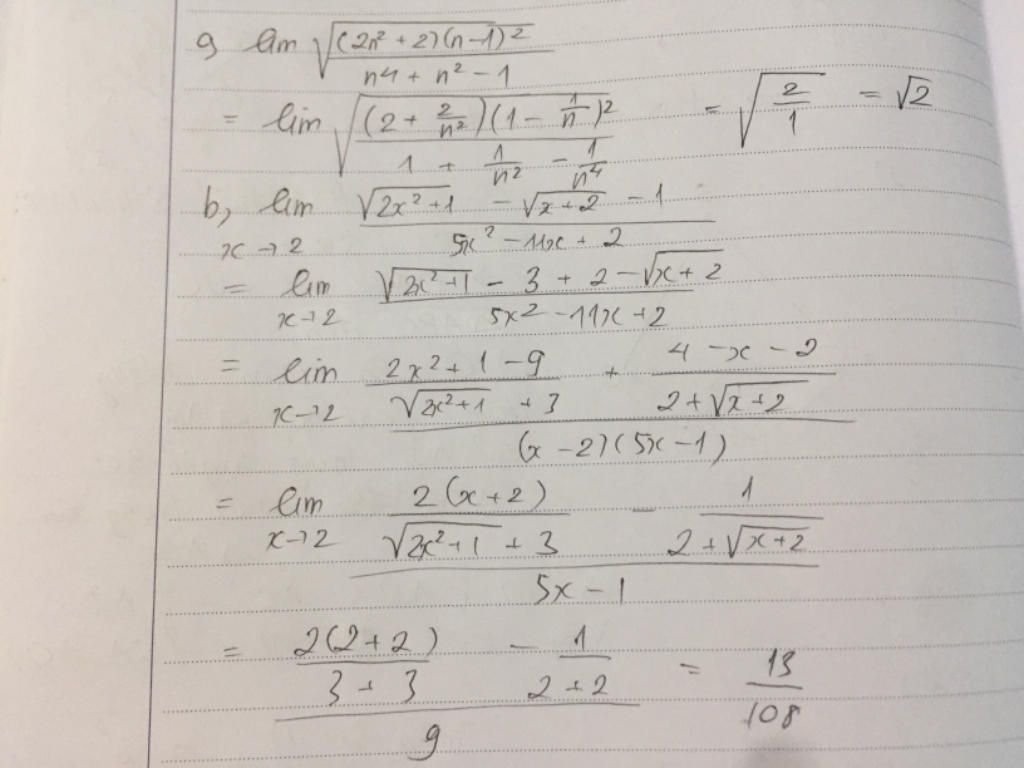 a, lim √((2n² + 2)(n-1)² / (n⁴ + n² - 1))
= lim √((2 + 2/n²)(1 - 1/n)² / (1 + 1/n² - 1/n⁴)) = √(2/1) = √2
b, lim x→2 (√(2x²+1) - √(x+2) - 1) / (5x² - 11x + 2)
= lim x→2 (√(2x²+1) - 3 + 2 - √(x+2)) / (5x² - 11x + 2)
= lim x→2 ((2x² + 1 - 9)/(√(2x²+1) + 3) + (4 - x - 2)/(2 + √(x+2))) / ((x - 2)(5x - 1))
= lim x→2 (2(x+2)/(√(2x²+1) + 3) - 1/(2 + √(x+2))) / (5x - 1)
= (2(2+2)/(3+3) - 1/(2+2)) / 9 = 13/108